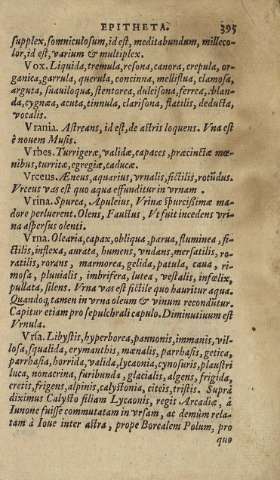 EPITHETA. 395
supplex, somniculosum, id est, meditabundum, milleco-
lor, id est, varium & multiplex.
Vox. Liquida, tremula, resona, canora, crepula, or-
ganica, garrula, querula, concinna, melliflua, clamosa,
arguta, suauiloqua, stentorea, dulcisona, ferrea, blan-
da, cygnæa, acuta, tinnula, clarisona, flatilis, deducta,
vocalis.
Vrania. Astreans, id est, de astris loquens. Vna est
è nouem Musis.
Vrbes. Turrigeræ, validæ, rapaces, præcinctæ mœ-
nibus, turritæ, egregiæ, caducæ.
Vrceus. Æneus, aquarius, vrnalis, fictilis, rotũdus.
Vrceus vas est quo aqua effunditur in vrnam.
Vrina. Spurca, Apuleius, Vrinæ spurcissimæ ma-
dore perluerent. Olens, Faustus, Vt fuit incedens vri-
na aspersus olenti.
Vrna. Olearia, capax, obliqua, parua, fluminea, fi-
ctilis, inflexa, aurata, humens, vndans, mersatilis, ro-
ratilis, rotans, marmorea, gelida, patula, caua, ri-
mosa, pluuialis, imbrifera, lutea, vestalis, infœlix,
pullata, silens. Vrna vas est fictile quo hauritur aqua.
Quandoq, tamen in vrna oleum & vinum reconditur.
Capitur etiam pro sepulchrali capulo. Diminutiuum est
Vrnula.
Vrsa. Libystis, hyperborea, pannonis, immanis, vil-
losa, squalida, erymanthis, mænalis, parrhasis, getica,
parrhasia, horrida, valida, lycaonia, cynosuris, plaustri
luca, nonacrina, furibunda, glacialis, algens, frigida,
cretis, frigens, alpinis, calystonia, citeis, tristis. Suprà
diximus Calysto filiam Lycaonis, regis Arcadiæ, à
Iunone fuisse commutatam in vrsam, ac demùm rela-
tam à Ioue inter astra, prope Borealem Polum, pro
quo